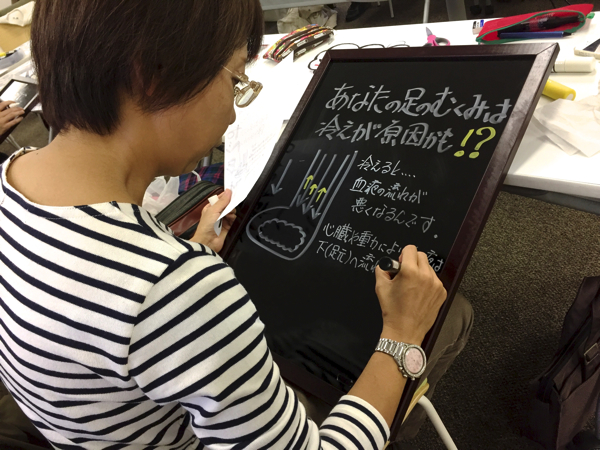 あなたの足のむくみは
冷えが原因かも!?
冷えると....
血液の流れが
悪くなるんです。
心臓や重力によ
下(足元)へ流